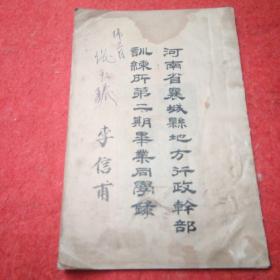 河南省襄城縣地方行政幹部
訓練所第二期畢業同學錄
李信甫